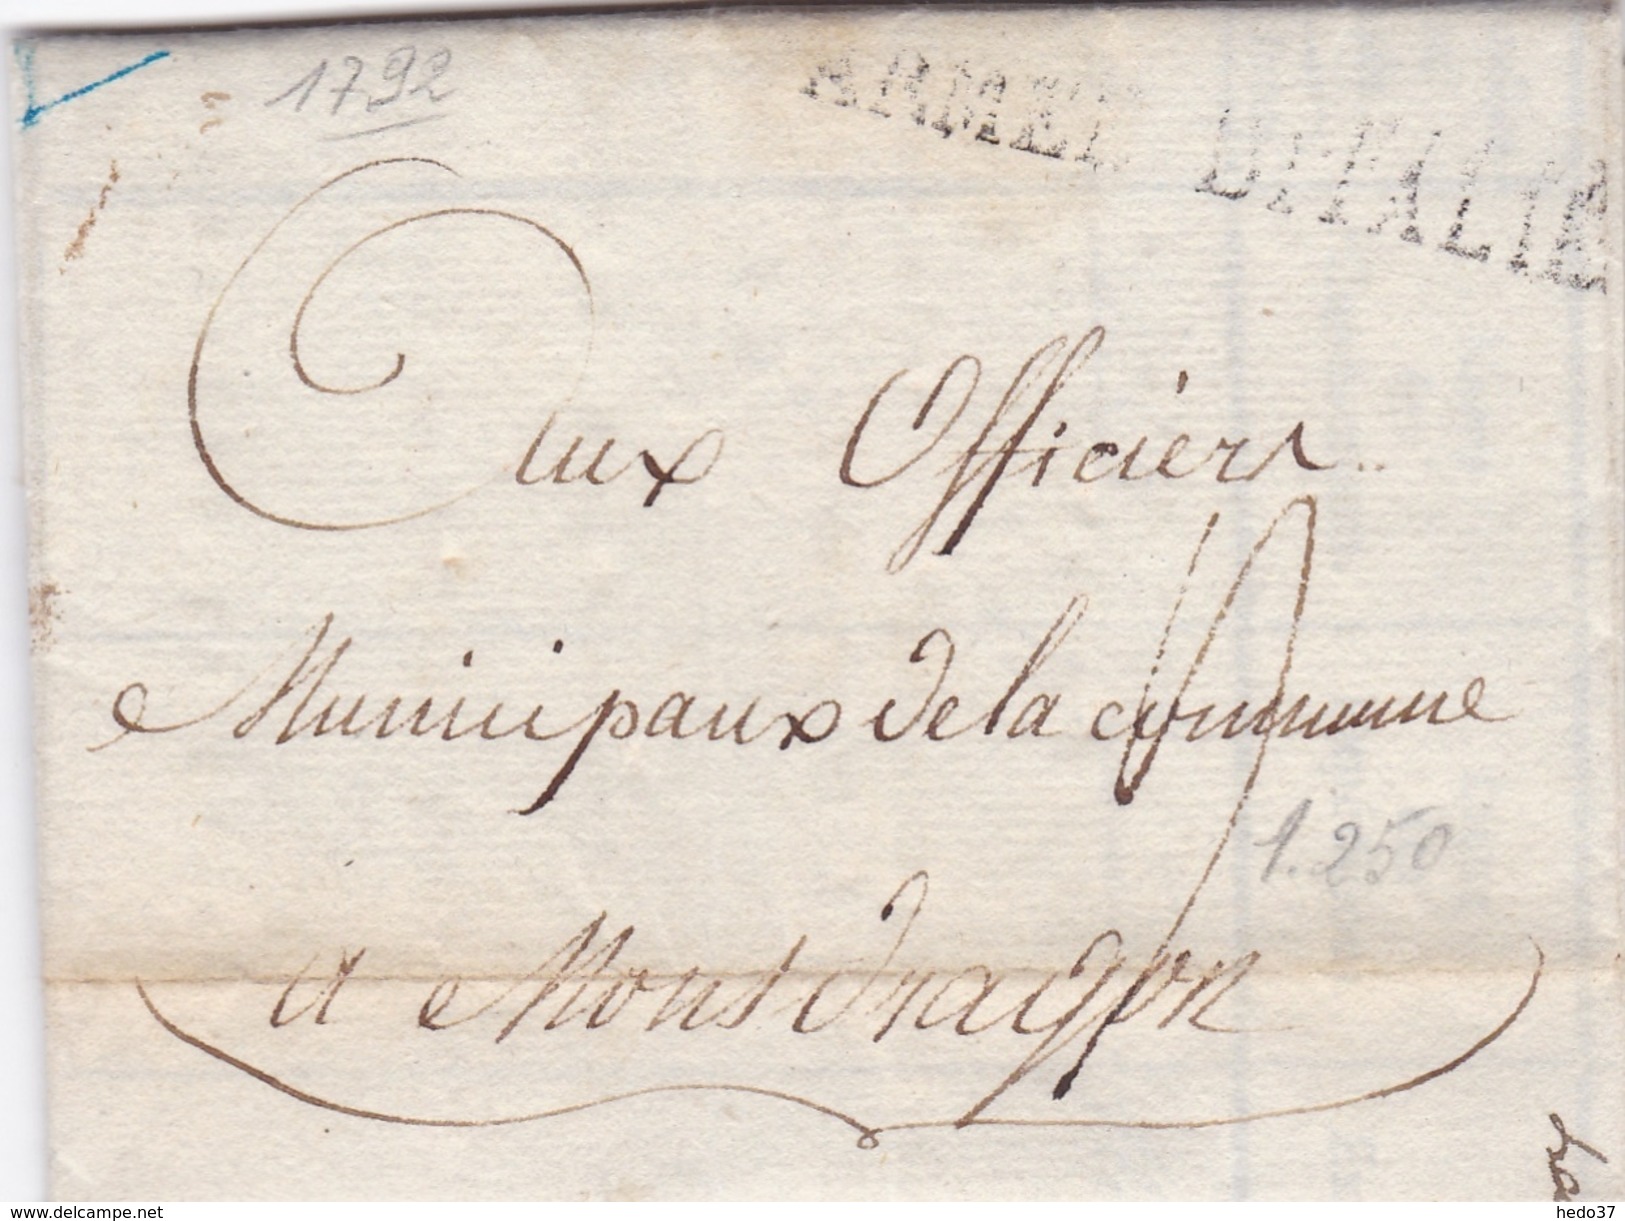 1792
ARMEE D'ITALIE
Aux Officiers
Municipaux de la commune
1.250
a Montdragon
www.delcampe.net
hedo37